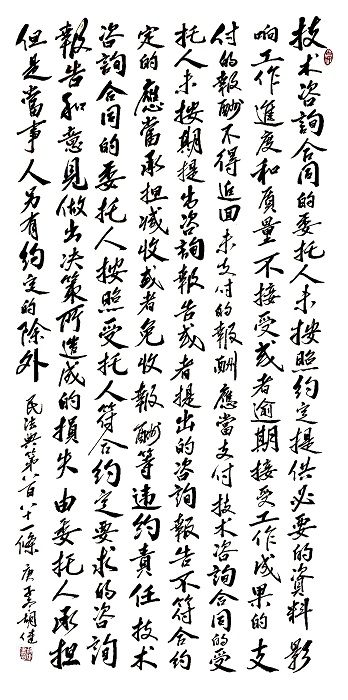 技术咨詢合同的委托人未按照約定提供必要的資料影
响工作進度和质量不接受或者逾期接受工作成果的支
付的報酬不得追回未支付的報酬應當支付技术咨詢合同的受
托人未按期提出咨詢報告或者提出的咨詢報告不符合約
定的應當承担减收或者免收報酬等违約責任技术
咨詢合同的委托人按照受托人符合約定要求的咨詢
報告和意見做出决策所造成的損失由委托人承担
但是當事人另有約定的除外
民法典第八百八十一條
庚子